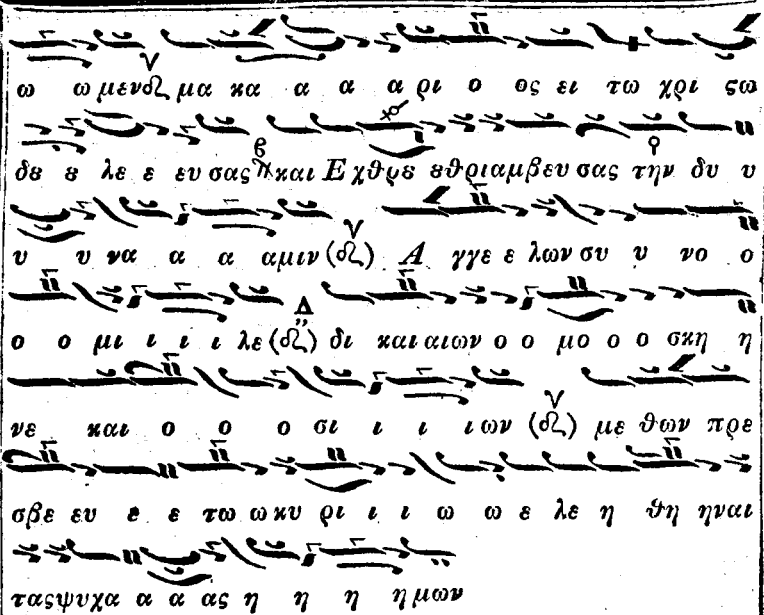 ω ω μεν μα κα α α α ρι ο ος ει τω χρι ϛω
δȣ ȣ λε ε ευ σας και Ε χθρȣ εθριαμβευ σας την δυ υ
υ υ να α α αμιν Α γγε ε λων συ υ νο ο
ο ο μι ι ι ι λε δι και αιων ο ο μο ο ο σκη η
νε και ο ο ο σι ι ι ι ων με θων πρε
σβε ευ ε ε τω ω κυ ρι ι ι ω ω ε λε η θη ηναι
τας ψυχα α α ας η η η ημων